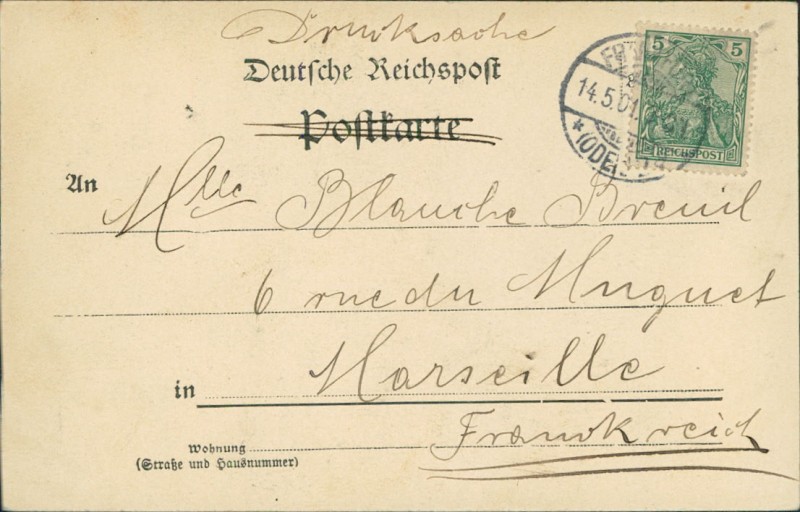 Drucksache
Deutsche Reichspost
Postkarte
5 5
REICHSPOST
14.5.01.
An Mlle Blanche Breuil
6 rue du Muguet
in Marseille
Wohnung
(Straße und Hausnummer)
Frankreich